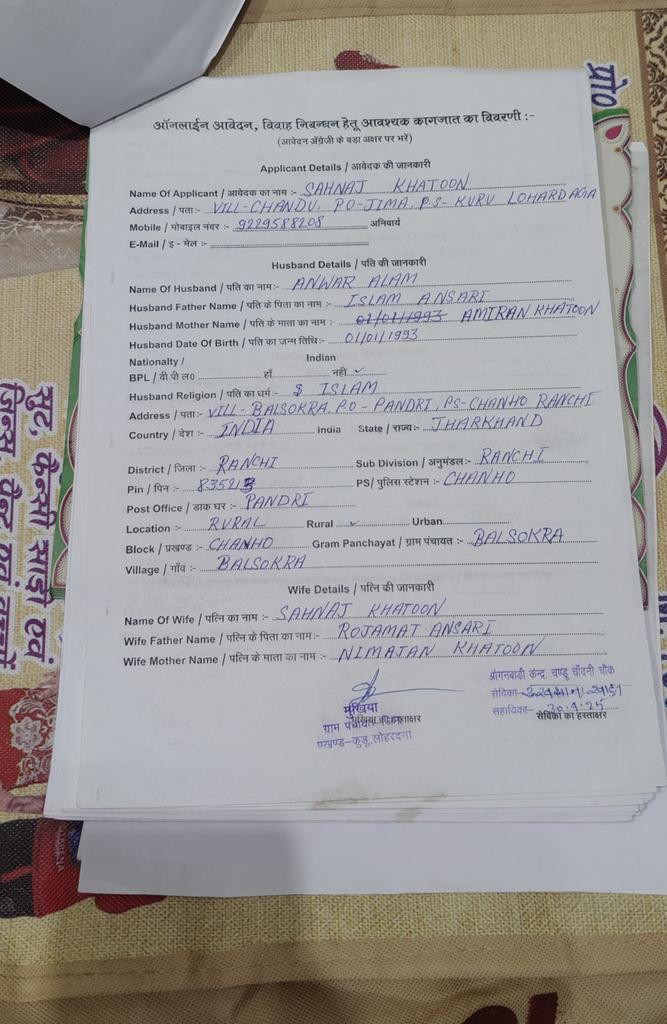 ऑनलाईन आवेदन, विवाह निबन्धन हेतू आवश्यक कागजात का विवरणी :-
(आवेदन अँग्रेजी के बड़ा अक्षर पर भरें)
Applicant Details / आवेदक की जानकारी
Name Of Applicant / आवेदक का नाम :- SAHNAJ KHATOON
Address / पता:- VILL-CHANDU, PO-JIMA, P.S- KURU LOHARDAGA
Mobile / मोबाइल नंबर :- 9229588208 अनिवार्य
E-Mail / इ - मेल :-
Husband Details / पति की जानकारी
Name Of Husband / पति का नाम:- ANWAR ALAM
Husband Father Name / पति के पिता का नाम :- ISLAM ANSARI
Husband Mother Name / पति के माता का नाम :- 01/01/1993 AMIRAN KHATOON
Husband Date Of Birth / पति का जन्म तिथि:- 01/01/1993
Nationalty / Indian
BPL / वी पी ल० हाँ नहीं ✓
Husband Religion / पति का धर्म:- $ ISLAM
Address / पता:- VILL- BALSOKRA, P.O - PANDRI, PS-CHANHO RANCHI
Country / देश :- INDIA India State / राज्य:- JHARKHAND
District / जिला :- RANCHI Sub Division / अनुमंडल:- RANCHI
Pin / पिन :- 835213 PS/ पुलिस स्टेशन :- CHANHO
Post Office / डाक घर :- PANDRI
Location :- RURAL Rural ✓ Urban
Block / प्रखण्ड :- CHANHO Gram Panchayat / ग्राम पंचायत :- BALSOKRA
Village / गाँव :- BALSOKRA
Wife Details / पत्नि की जानकारी
Name Of Wife / पत्नि का नाम :- SAHNAJ KHATOON
Wife Father Name / पत्नि के पिता का नाम:- ROJAMAT ANSARI
Wife Mother Name / पत्नि के माता का नाम :- NIMAJAN KHATOON
मुखिया
हस्ताक्षर
ग्राम
प्रखण्ड-कुडू, लोहरदगा
आँगनबाड़ी केन्द्र, चण्डू चाँदनी चौक
सेविका-
सहायिका- 30.4.25
सेविका का हस्ताक्षर
प्रो०
सुट, फैन्सी साड़ी एवं